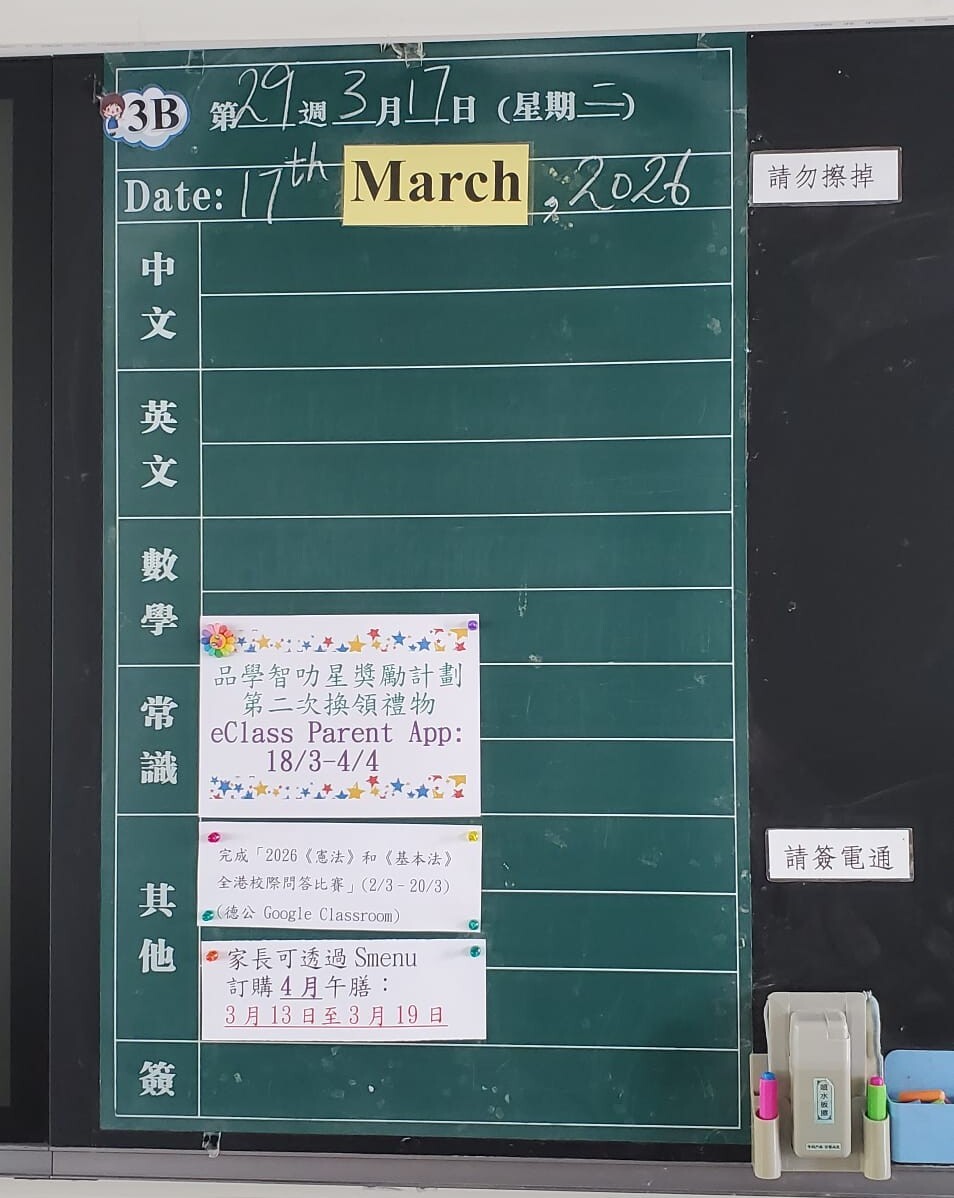 3B 第29週3月17日（星期二）
Date: 17th March, 2026
請勿擦掉
中文
英文
數學
常識
品學智叻星獎勵計劃
第二次換領禮物
eClass Parent App:
18/3-4/4
其他
完成「2026《憲法》和《基本法》
全港校際問答比賽」(2/3-20/3)
(德公 Google Classroom)
請簽電通
家長可透過 Smenu
訂購4月午膳：
3月13日至3月19日
簽
噴水板擦